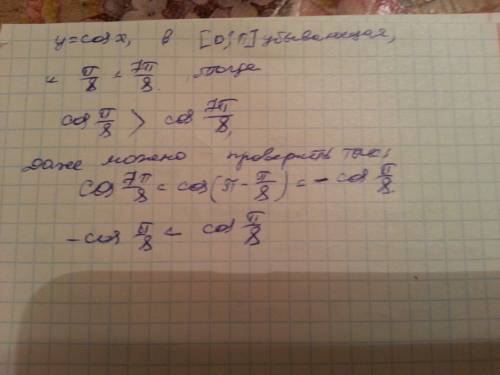 y=cosx, в [0;π] убывающая,
и π/8 < 7π/8. тогда
cos π/8 > cos 7π/8,
даже можно проверить так,
cos 7π/8 = cos(π-π/8) = -cos π/8
-cos π/8 < cos π/8